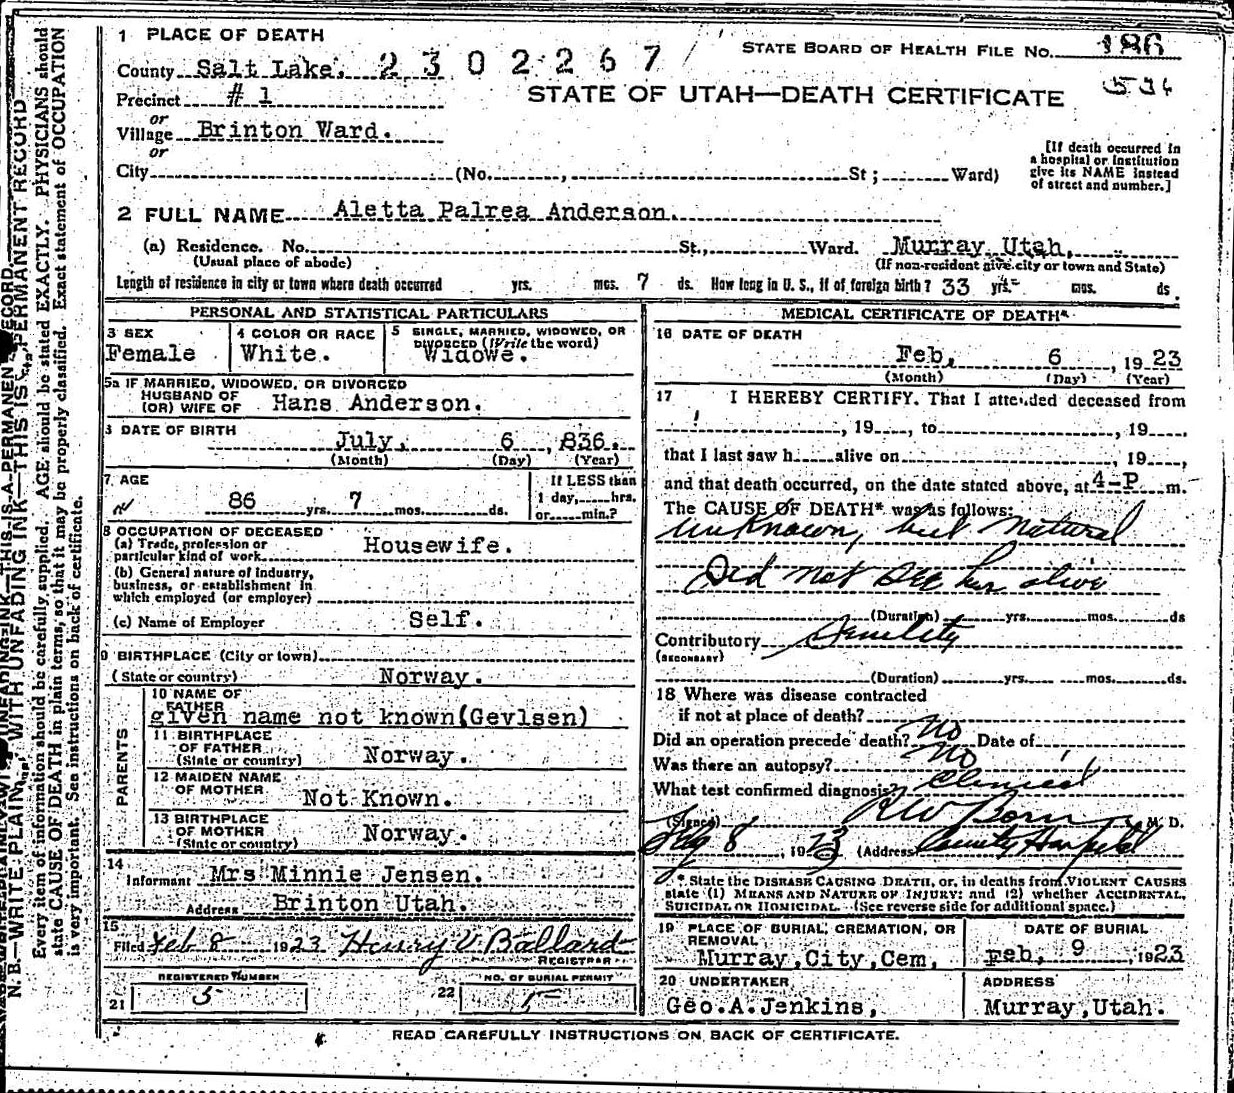 1 PLACE OF DEATH
STATE BOARD OF HEALTH FILE NO. 186
County Salt Lake. 2302267
Precinct # 1
STATE OF UTAH—DEATH CERTIFICATE
or
Village Brinton Ward.
or
City (No. , St ; Ward)
[If death occurred in
a hospital or institution
give its NAME instead
of street and number.]
2 FULL NAME Aletta Palrea Anderson.
(a) Residence. No. St., Ward. Murray Utah,
(Usual place of abode) (If non-resident give city or town and State)
Length of residence in city or town where death occurred yrs. mos. 7 ds. How long in U. S., if of foreign birth? 33 yrs. mos. ds.
PERSONAL AND STATISTICAL PARTICULARS
3 SEX
Female
4 COLOR OR RACE
White.
5 SINGLE, MARRIED, WIDOWED, OR
DIVORCED (Write the word)
Widowe.
5a IF MARRIED, WIDOWED, OR DIVORCED
HUSBAND OF
(OR) WIFE OF Hans Anderson.
DATE OF BIRTH
July, 6 , 836.
(Month) (Day) (Year)
7 AGE
86 yrs. 7 mos. ds.
If LESS than
1 day, hrs.
or min.?
8 OCCUPATION OF DECEASED
(a) Trade, profession or
particular kind of work Housewife.
(b) General nature of industry,
business, or establishment in
which employed (or employer)
(c) Name of Employer Self.
9 BIRTHPLACE (City or town)
(State or country) Norway.
PARENTS
10 NAME OF
FATHER
given name not known(Gevlsen)
11 BIRTHPLACE
OF FATHER
(State or country) Norway.
12 MAIDEN NAME
OF MOTHER
Not Known.
13 BIRTHPLACE
OF MOTHER
(State or country) Norway.
14
Informant Mrs Minnie Jensen.
Address Brinton Utah.
15
Filed Feb 8 1923 Henry V. Ballard
REGISTRAR
REGISTERED NUMBER
21 5
NO. OF BURIAL PERMIT
22
MEDICAL CERTIFICATE OF DEATH*
16 DATE OF DEATH
Feb, 6 , 1923
(Month) (Day) (Year)
17 I HEREBY CERTIFY, That I attended deceased from
, 19 , to , 19 ,
that I last saw h alive on , 19 ,
and that death occurred, on the date stated above, at 4-P m.
The CAUSE OF DEATH* was as follows:
unknown, but natural
Did not see her alive
(Duration) yrs. mos. ds
Contributory Senility
(SECONDARY)
(Duration) yrs. mos. ds.
18 Where was disease contracted
if not at place of death?
Did an operation precede death? No Date of
Was there an autopsy? No
What test confirmed diagnosis? Clinical
(Signed) M. D.
8 , 1923 (Address County
* State the DISEASE CAUSING DEATH, or, in deaths from VIOLENT CAUSES
state (1) MEANS AND NATURE OF INJURY; and (2) whether ACCIDENTAL,
SUICIDAL OR HOMICIDAL. (See reverse side for additional space.)
19 PLACE OF BURIAL, CREMATION, OR
REMOVAL
Murray,City,Cem,
DATE OF BURIAL
Feb, 9 , 1923
20 UNDERTAKER
Geo.A.Jenkins,
ADDRESS
Murray,Utah.
READ CAREFULLY INSTRUCTIONS ON BACK OF CERTIFICATE.
N. B.—WRITE PLAINLY, WITH UNFADING INK—THIS IS A PERMANENT RECORD
Every item of information should be carefully supplied. AGE should be stated EXACTLY. PHYSICIANS should
state CAUSE OF DEATH in plain terms, so that it may be properly classified. Exact statement of OCCUPATION
is very important. See instructions on back of certificate.